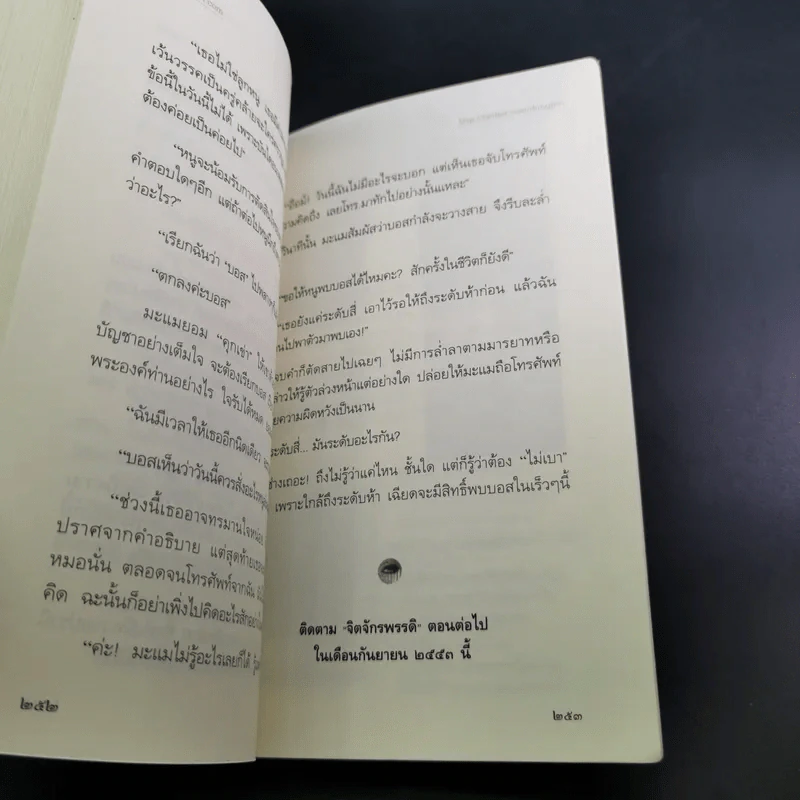 “เธอไม่ใช่ลูกหนู
เว้นวรรคเป็นครู่คล้ายจะ
ข้อนี้ในวันนี้ไม่ได้ เพราะ
ต้องค่อยเป็นค่อยไป”
“หนูจะน้อมรับการ
คำตอบใดๆอีก แต่ถ้าต่อไป
ว่าอะไร?”
“เรียกฉันว่า ‘บอส’
“ตกลงค่ะบอส”
มะแมยอม “คุกเข่า”
บัญชาอย่างเต็มใจ จะต้องเรียก
พระองค์ท่านอย่างไร ใจรับได้หมด
“ฉันมีเวลาให้เธออีกนิดเดียว
“บอสเห็นว่าวันนี้ควรสั่งอะไร
“ช่วงนี้เธออาจทรมานใจหน่อย
ปราศจากคำอธิบาย แต่สุดท้าย
หมอนั่น ตลอดจนโทรศัพท์จากฉัน
คิด ฉะนั้นก็อย่าเพิ่งไปคิดอะไรสักอย่าง
“ค่ะ! มะแมไม่รู้อะไรเลยก็ได้
๒๕๒
วันนี้ฉันไม่มีอะไรจะบอก แต่เห็นเธอจับโทรศัพท์
ามคิดถึง เลยโทร.มาทักไปอย่างนั้นแหละ”
วินาทีนั้น มะแมสัมผัสว่าบอสกำลังจะวางสาย จึงรีบละล่ำ
“ขอให้หนูพบบอสได้ไหมคะ? สักครั้งในชีวิตก็ยังดี”
“เธอยังแค่ระดับสี่ เอาไว้รอให้ถึงระดับห้าก่อน แล้วฉัน
นไปพาตัวมาพบเอง!”
จบคำก็ตัดสายไปเฉยๆ ไม่มีการล่ำลาตามมารยาทหรือ
ล่าวให้รู้ตัวล่วงหน้าแต่อย่างใด ปล่อยให้มะแมถือโทรศัพท์
ยความผิดหวังเป็นนาน
ระดับสี่... มันระดับอะไรกัน?
ช่างเถอะ! ถึงไม่รู้ว่าแค่ไหน ชั้นใด แต่ก็รู้ว่าต้อง “ไม่เบา”
เพราะใกล้ถึงระดับห้า เฉียดจะมีสิทธิ์พบบอสในเร็วๆนี้
ติดตาม “จิตจักรพรรดิ” ตอนต่อไป
ในเดือนกันยายน ๒๕๕๓ นี้
๒๕๓